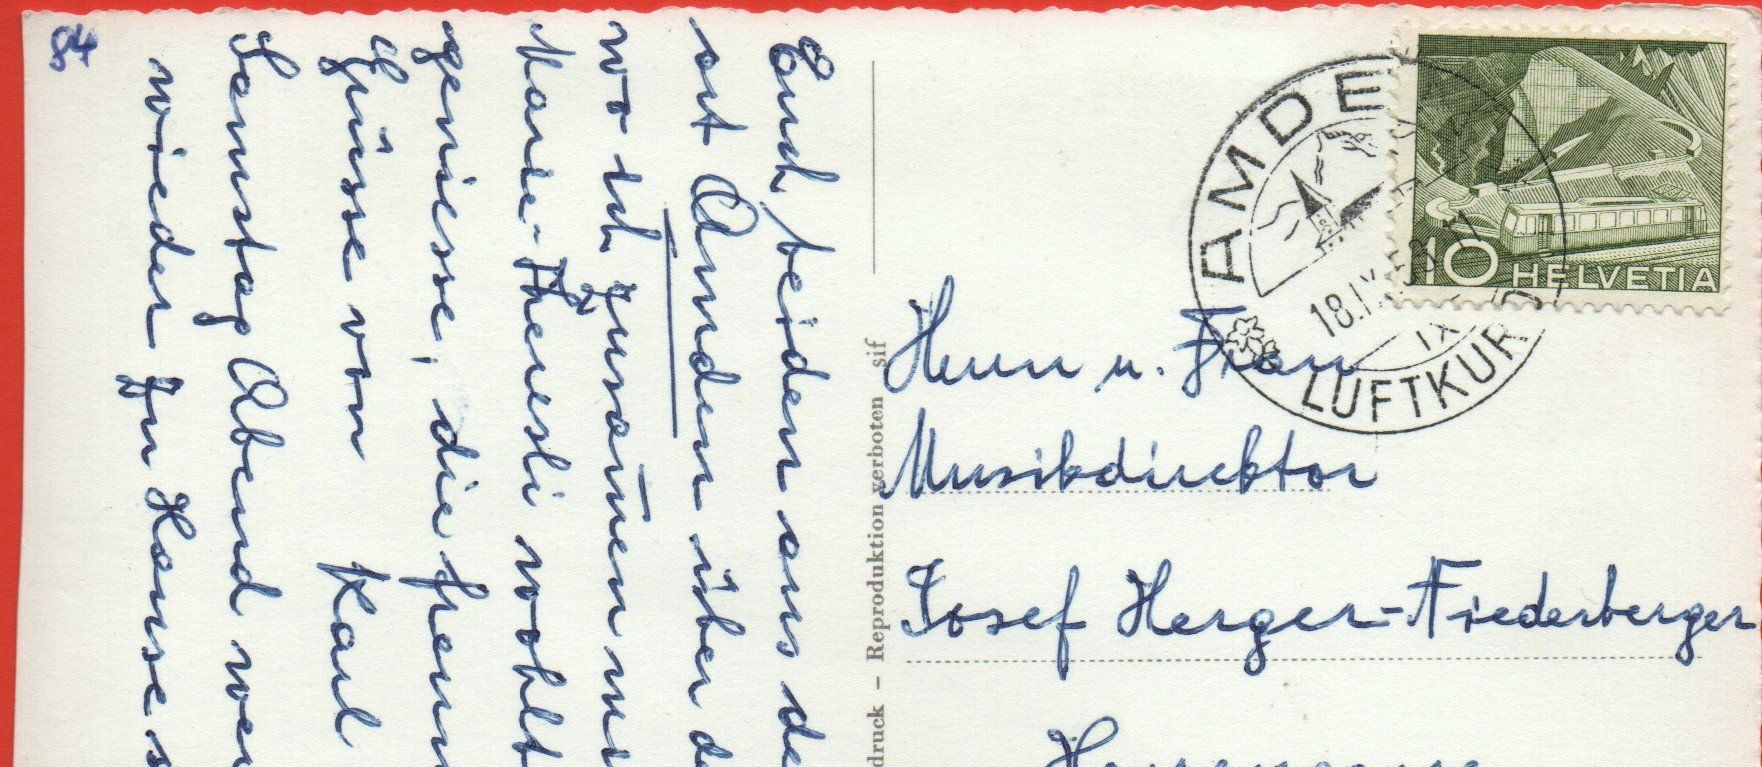 84
Euch beiden aus de
ort Amden über d
wo ich zusammen m
Marie-Theresli wohl
geniesse, die freun
Grüsse von Karl
Samstag Abend wer
wieder zu Hause s
druck – Reproduktion verboten sif
AMDE
18.IX
LUFTKUR
10 HELVETIA
Herrn u. Frau
Musikdirektor
Josef Herger-Fiederberger